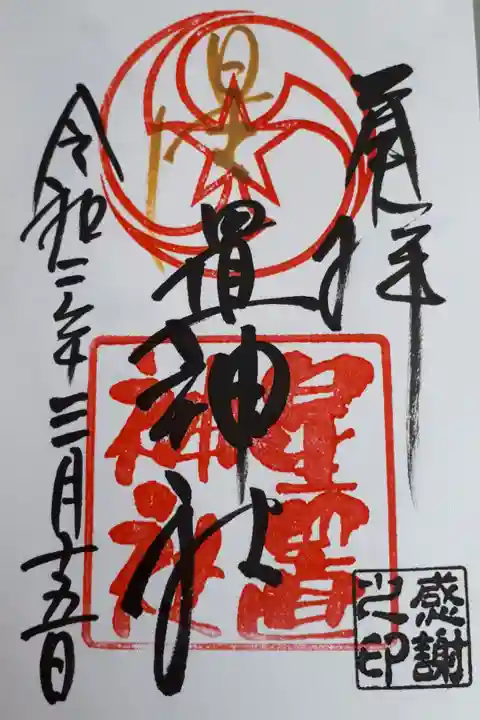 奉拝
星置神社
令和二年三月十五日
星置
神社
感謝
之印